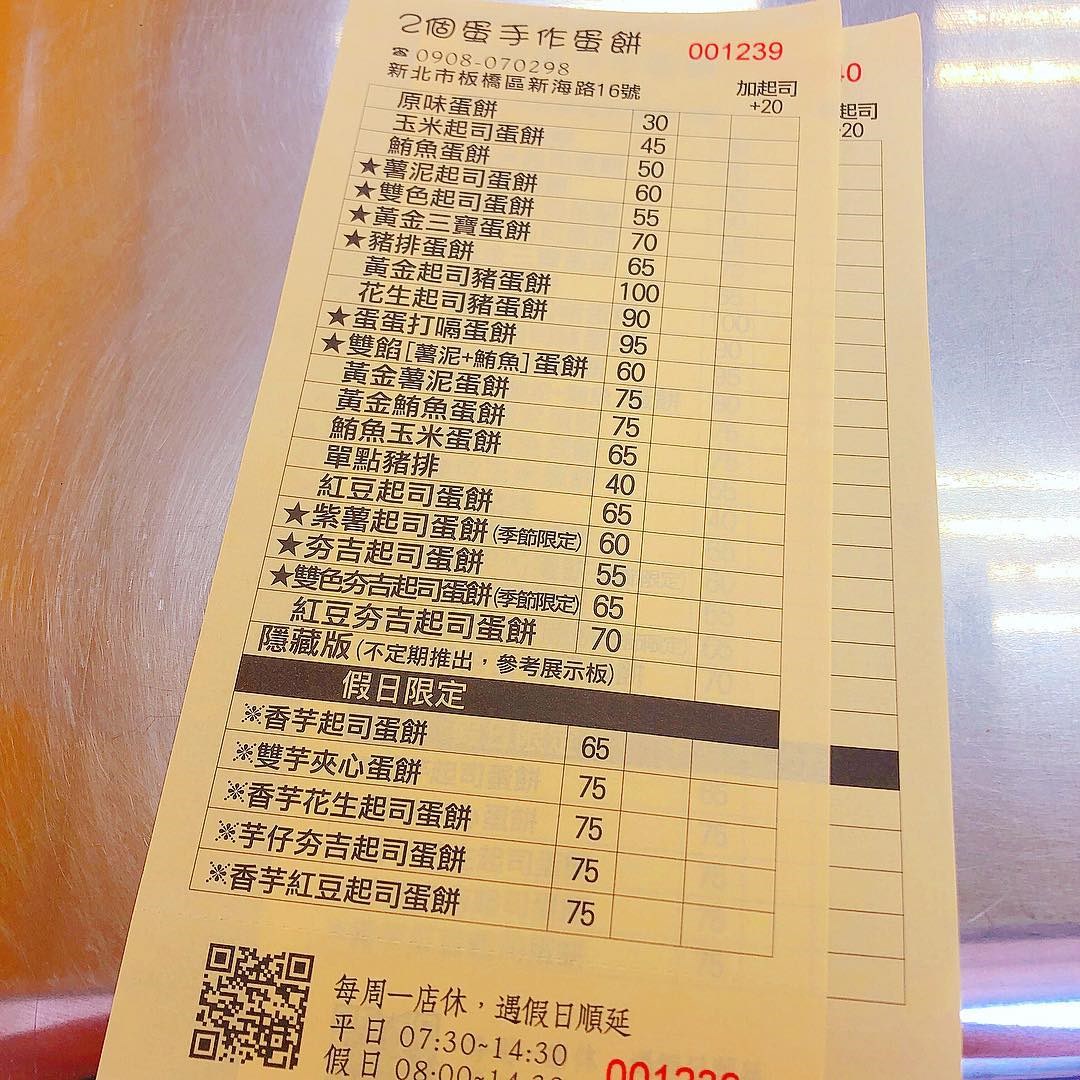 2個蛋手作蛋餅 001239
☎0908-070298
新北市板橋區新海路16號
加起司
+20
原味蛋餅 30
玉米起司蛋餅 45
鮪魚蛋餅 50
★薯泥起司蛋餅 60
★雙色起司蛋餅 55
★黃金三寶蛋餅 70
★豬排蛋餅 65
黃金起司豬蛋餅 100
花生起司豬蛋餅 90
★蛋蛋打嗝蛋餅 95
★雙餡[薯泥+鮪魚]蛋餅 60
黃金薯泥蛋餅 75
黃金鮪魚蛋餅 75
鮪魚玉米蛋餅 65
單點豬排 40
紅豆起司蛋餅 65
★紫薯起司蛋餅(季節限定) 60
★夯吉起司蛋餅 55
★雙色夯吉起司蛋餅(季節限定) 65
紅豆夯吉起司蛋餅 70
隱藏版(不定期推出，參考展示板)
假日限定
※香芋起司蛋餅 65
※雙芋夾心蛋餅 75
※香芋花生起司蛋餅 75
※芋仔夯吉起司蛋餅 75
※香芋紅豆起司蛋餅 75
每周一店休，遇假日順延
平日 07:30~14:30
假日 08:00~14:30
001239
40
起司
20